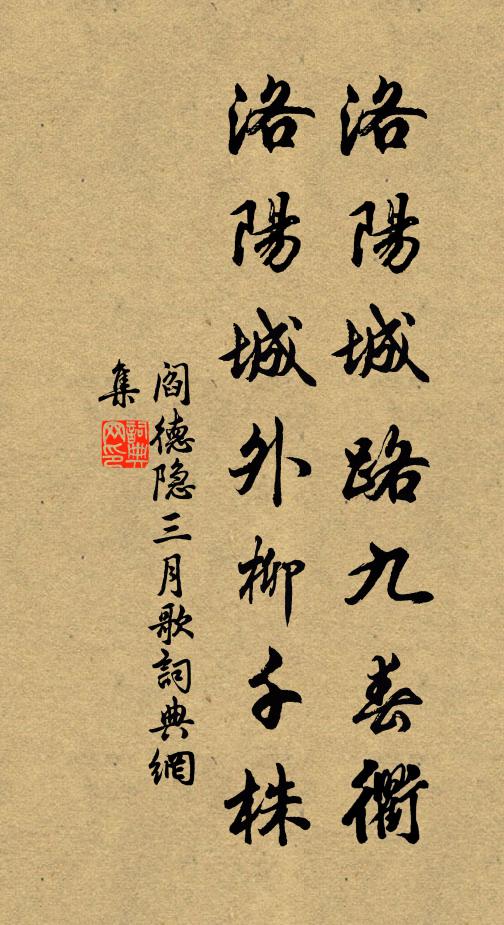 洛陽城路九春衢
洛陽城外柳千株
閻德隐三月歌詞典網
集
詞典
网印